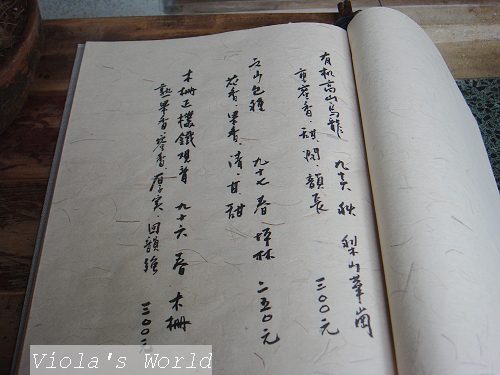 有机高山烏龍 九十六 秋 梨山華崗
重蜜香.甜.潤.韻長 三〇〇元
文山包種 九十七 春 坪林
花香果香.清.甘.甜 二五〇元
木柵正欉鐵觀音 九十六 春 木柵
熟果香.蜜香.厚實.回韻強 三〇〇元
Viola's World